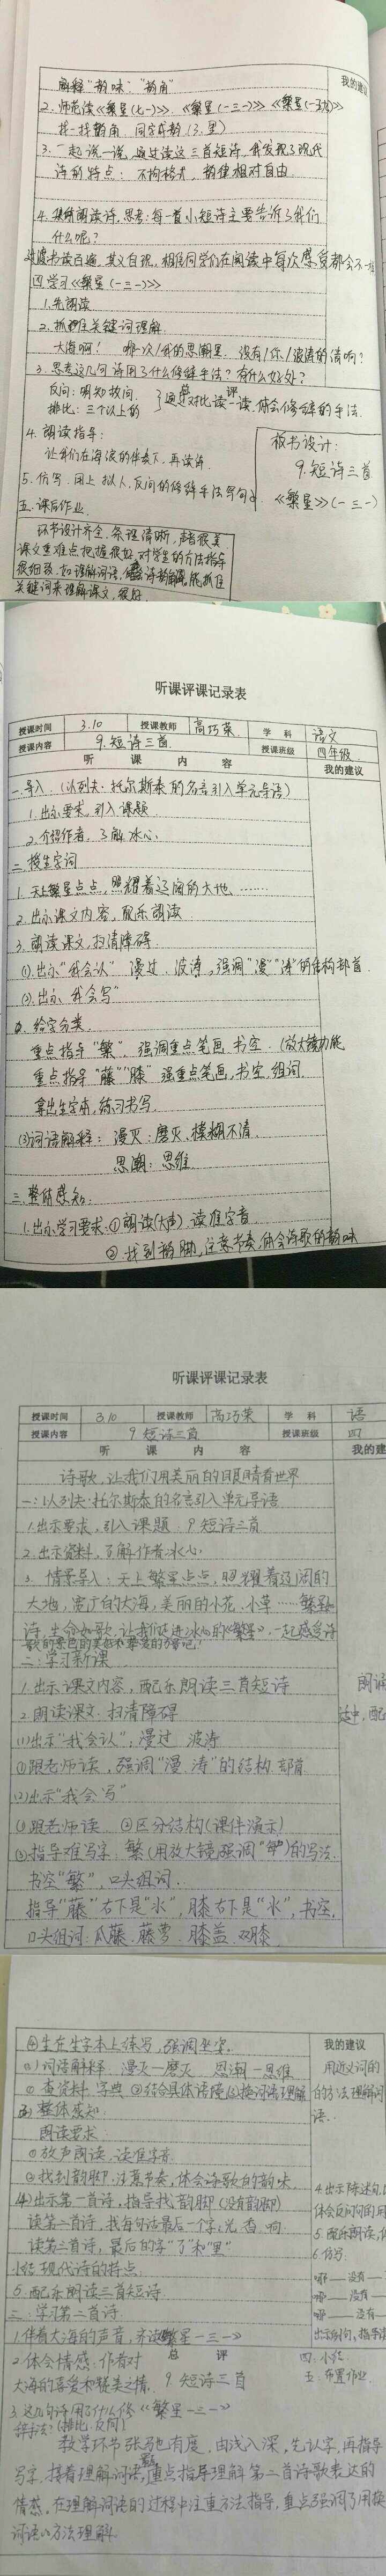 解释“韵味”“韵角”
我的建议
2. 师范读《繁星(七一)》《繁星(一三一)》《繁星(一五九)》
找一找韵角 同字成韵 (3. 里)
3. 一起说一说, 通过读这三首短诗, 你发现了现代
诗的特点: 不拘格式, 韵律相对自由.
4. 集体朗读诗, 思考: 每一首小短诗主要告诉了我们
什么呢?
过渡: 书读百遍, 其义自现, 相信同学们在阅读中每次感受都会不一样
四 学习《繁星(一三一)》
1. 先朗读
2. 抓住关键词理解
大海啊! 哪一次/我的思潮里 没有/你/波涛的清响?
3. 思考这几句 诗用了什么修辞手法? 有什么好处?
反问: 明知故问.
排比: 三个以上的
通过对比读一读, 体会修辞的手法.
4. 朗读指导:
让我们在海浪的伴奏下, 再读诗.
5. 仿写. 用上拟人、反问的修辞手法写句子
五. 课后作业.
板书设计:
9. 短诗三首
《繁星》(一三一)
总 评
环节设计齐全, 条理清晰, 声音很美
课文重难点把握很好, 对学生的方法指导
很细致, 如理解词语, 能抓住
关键词来理解课文, 很好.
听课评课记录表
授课时间 3.10 授课教师 高巧荣 学 科 语文
授课内容 9. 短诗三首 授课班级 四年级
听 课 内 容 我的建议
一. 导入. (以列夫·托尔斯泰的名言引入单元导语)
1. 出示要求, 引入课题
2. 介绍作者, 了解冰心.
二. 检生字词
1. 天上繁星点点, 照耀着辽阔的大地. ……
2. 出示课文内容, 配乐朗读.
3. 朗读课文, 扫清障碍.
(1). 出示“我会认” 漫过. 波涛, 强调“漫”“涛”的结构部首.
(2). 出示“我会写”
给字分类.
重点指导“繁”. 强调重点笔画. 书空. (放大镜功能
重点指导“藤”“膝” 强重点笔画, 书空, 组词.
拿出生字本, 练习书写.
(3) 词语解释: 漫灭: 磨灭. 模糊不清.
思潮: 思维
三. 整体感知:
1. 出示学习要求: ①朗读(大声) 读准字音.
② 找到韵脚, 注意节奏, 体会诗歌的韵味
听课评课记录表
授课时间 3.10 授课教师 高巧荣 学 科 语
授课内容 9 短诗三首 授课班级 四
听 课 内 容 我的建
诗歌, 让我们用美丽的眼睛看世界
一: 以列夫·托尔斯泰的名言引入单元导语
1. 出示要求, 引入课题: 9 短诗三首
2. 出示资料, 了解作者冰心
3. 情景导入: 天上繁星点点, 照耀着辽阔的
大地, 宽广的大海, 美丽的小花. 小草……繁星如
诗, 生命如歌. 让我们走进冰心的《繁星》, 一起感受诗
二: 学习新课
1. 出示课文内容, 配乐朗读三首短诗
2. 朗读课文. 扫清障碍
(1) 出示“我会认”, 漫过 波涛
①跟老师读, 强调“漫. 涛”的结构. 部首
(2) 出示“我会写”
①跟老师读 ②区分结构(课件演示)
③指导难写字 繁(用放大镜强调“敏”)的写法.
书空“繁”, 口头组词.
指导“藤”右下是“氺”, 膝右下是“氺”, 书空,
口头组词: 瓜藤. 藤萝. 膝盖. 双膝.
朗诵
④生在生字本上练写, 强调坐姿.
我的建议
(3) 词语解释: 漫灭—磨灭 思潮—思维
① 查资料. 字典 ②结合具体语境 ③换词语理解
用近义词的
的方法理解词
语.
3 整体感知.
阅读要求:
①放声朗读. 读准字音
②找到韵脚, 注意节奏, 体会诗歌的韵味.
(4) 出示第一首诗, 指导找韵脚(没有韵脚)
读第二首诗, 找每句话最后一个字, 光 香 响
读第三首诗, 最后的字“了”和“里”
小结: 现代诗的特点.
5. 配乐朗读三首短诗
4. 出示陈述句,
体会反问句的用
5 配乐朗读,
6. 仿写.
哪 — 没有 —
哪 — 没有 —
哪 — 没有 —
出示例句, 指导读
三: 学习第二首诗
1. 伴着大海的声音, 齐读繁星一三一》
2. 体会情感: 作者对
大海的喜爱和赞美之情.
3. 这几句诗用了什么修
辞手法? (排比. 反问)
总 评
9 短诗三首
《繁星一三一》
四: 小结
五: 布置作业
教学环节张弛有度, 由浅入深, 先认字, 再指导
写字, 接着理解词语, 重点指导理解第二首诗歌表达的
情感, 在理解词语的过程中注重方法指导, 重点强调了用换
词语的方法理解.